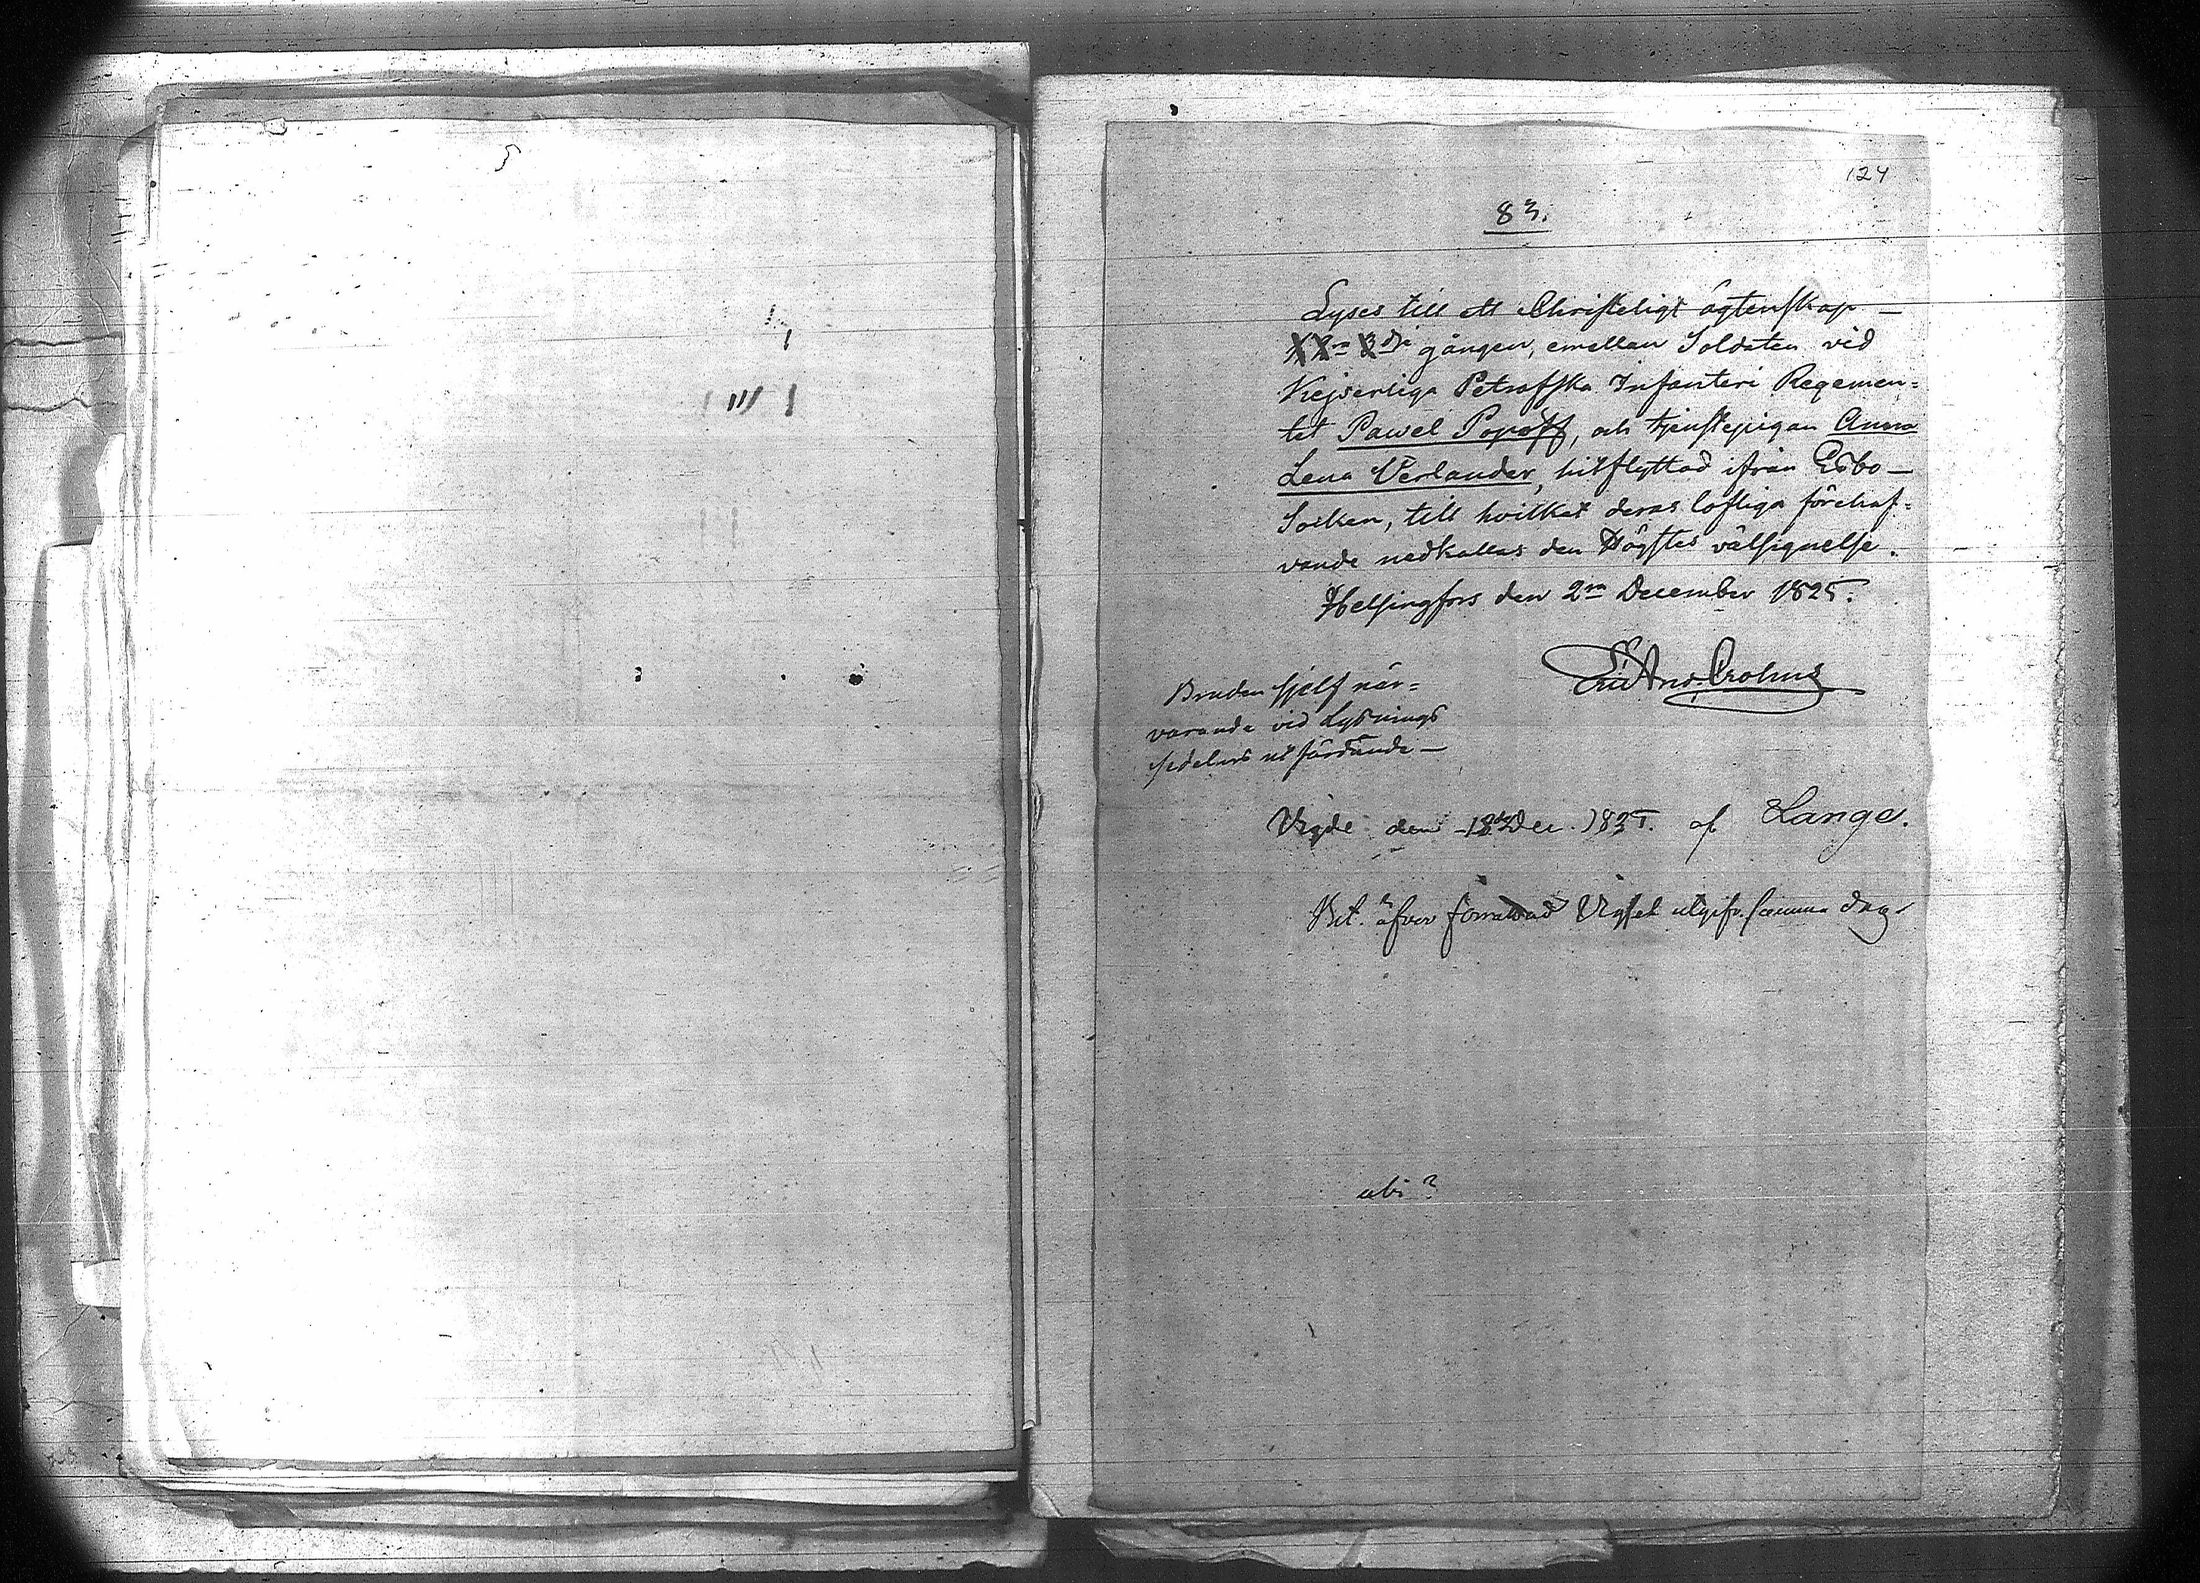 124
83.
Lyses till ett Christeligt ägtenskap
gången, emellan Soldaten vid
Kejserliga Petrofska Infanteri Regemen=
tet Pawel Popoff, och tjenstepigan Anna
Lena Verlander, hitflyttad ifrån Esbo
Socken, till hvilket deras lofliga förehaf=
vande nedkallas den Högstes välsignelse.
Helsingfors den 2m December 1825.
Crohns
Bruden sjelf när=
varande vid Lysnings
sedelns utfärdande
Vigde den 18de Dec. 1825. af Lange.
Bet. äfver förrättad Vigsel utgifv. samma dag.
ubi?